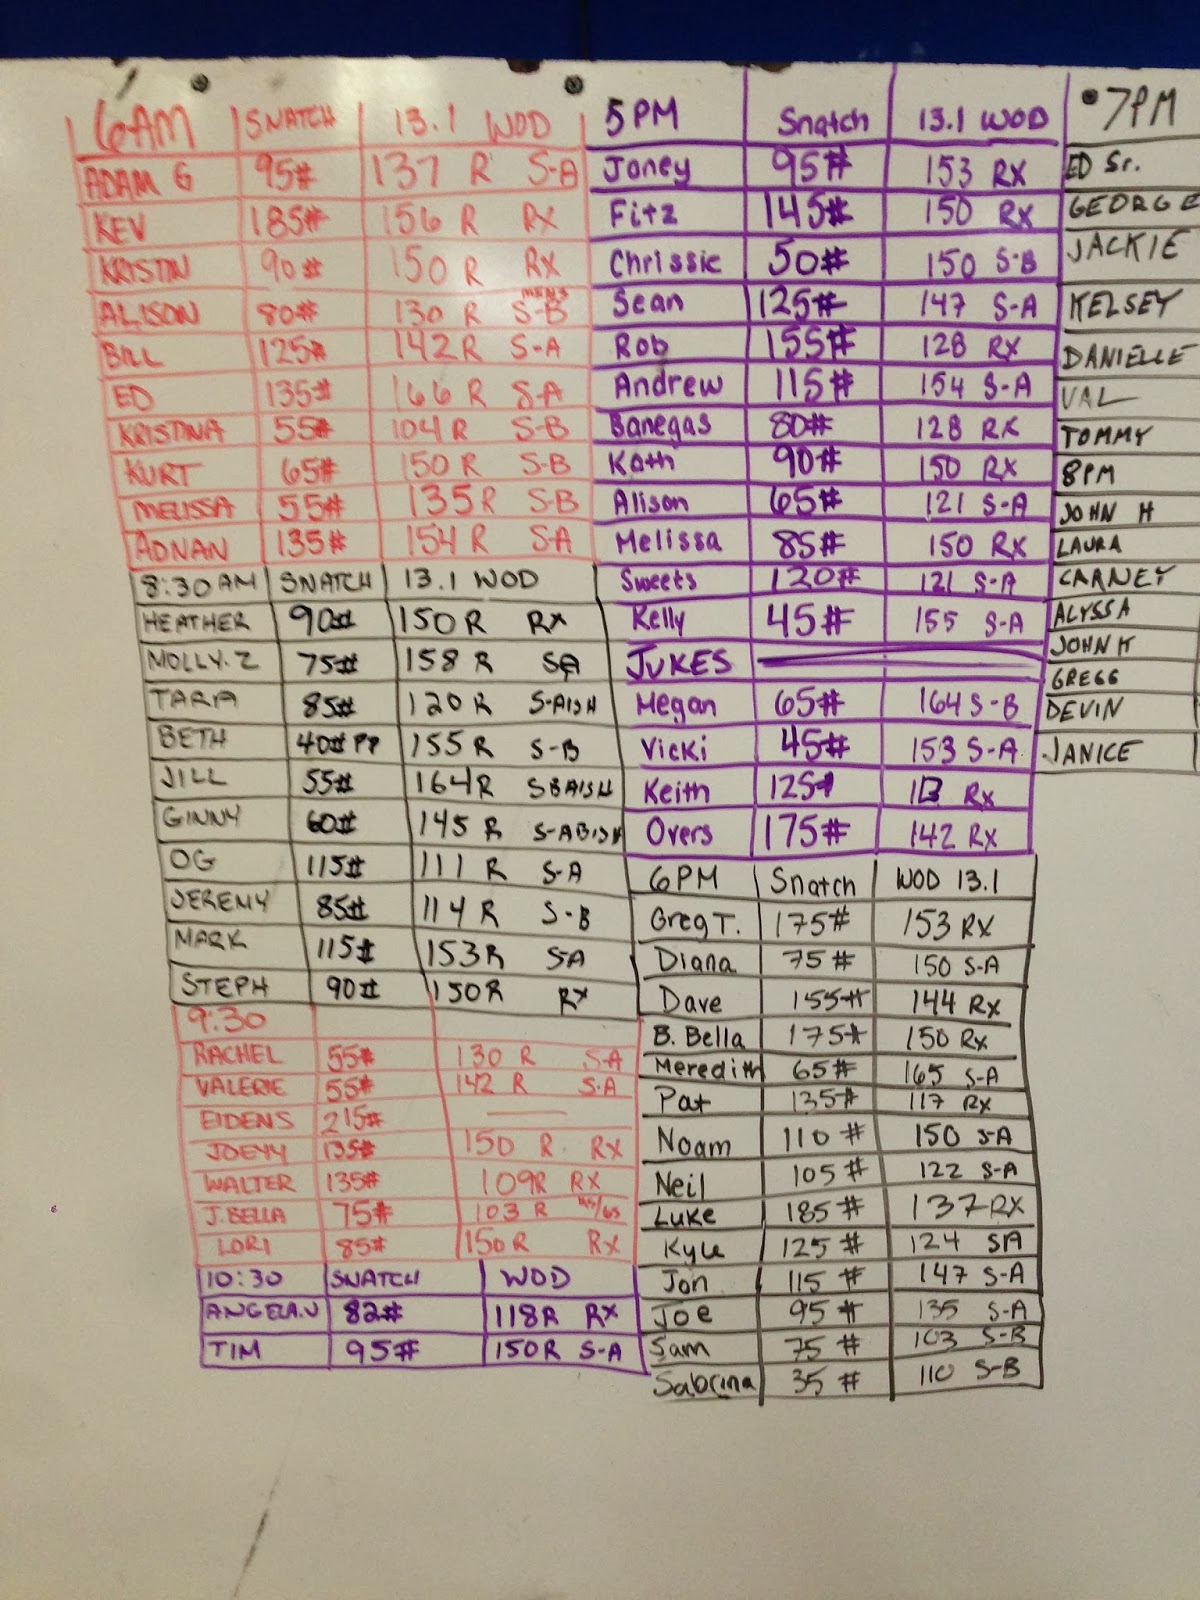 6AM SNATCH 13.1 WOD
ADAM G 95# 137 R S-A
KEV 185# 156 R RX
KRISTIN 90# 150 R RX
ALISON 80# 130 R MENS S-B
BILL 125# 142 R S-A
ED 135# 166 R S-A
KRISTINA 55# 104 R S-B
KURT 65# 150 R S-B
MELISSA 55# 135 R S-B
ADNAN 135# 154 R S-A
8:30 AM SNATCH 13.1 WOD
HEATHER 90# 150 R RX
MOLLY.Z 75# 158 R SA
TARA 85# 120 R S-AISH
BETH 40# PP 155 R S-B
JILL 55# 164 R SBAISH
GINNY 60# 145 R S-ABISH
OG 115# 111 R S-A
JEREMY 85# 114 R S-B
MARK 115# 153 R SA
STEPH 90# 150 R RX
9:30
RACHEL 55# 130 R S-A
VALERIE 55# 142 R S.A
EIDENS 215#
JOEYY 135# 150 R. RX
WALTER 135# 109R RX
J.BELLA 75# 103 R
LORI 85# 150 R RX
10:30 SNATCH WOD
ANGELA.N 82# 118R RX
TIM 95# 150R S-A
5PM Snatch 13.1 WOD
Joney 95# 153 RX
Fitz 145# 150 RX
Chrissie 50# 150 S-B
Sean 125# 147 S-A
Rob 155# 128 RX
Andrew 115# 154 S-A
Banegas 80# 128 RX
Kath 90# 150 RX
Alison 65# 121 S-A
Melissa 85# 150 RX
Sweets 120# 121 S-A
Kelly 45# 155 S-A
JUKES
Megan 65# 164 S-B
Vicki 45# 153 S-A
Keith 125# Rx
Overs 175# 142 RX
6PM Snatch WOD 13.1
Greg T. 175# 153 RX
Diana 75# 150 S-A
Dave 155# 144 RX
B. Bella 175# 150 Rx
Meredith 65# 165 S-A
Pat 135# 117 RX
Noam 110 # 150 S-A
Neil 105 # 122 S-A
Luke 185# 137 RX
Kyle 125 # 124 SA
Jon 115 # 147 S-A
Joe 95 # 135 S-A
Sam 75 # 103 S-B
Sabrina 35 # 110 S-B
7PM
ED Sr.
GEORGE
JACKIE
KELSEY
DANIELLE
VAL
TOMMY
8PM
JOHN H
LAURA
CARNEY
ALYSSA
JOHN K
GREGG
DEVIN
JANICE